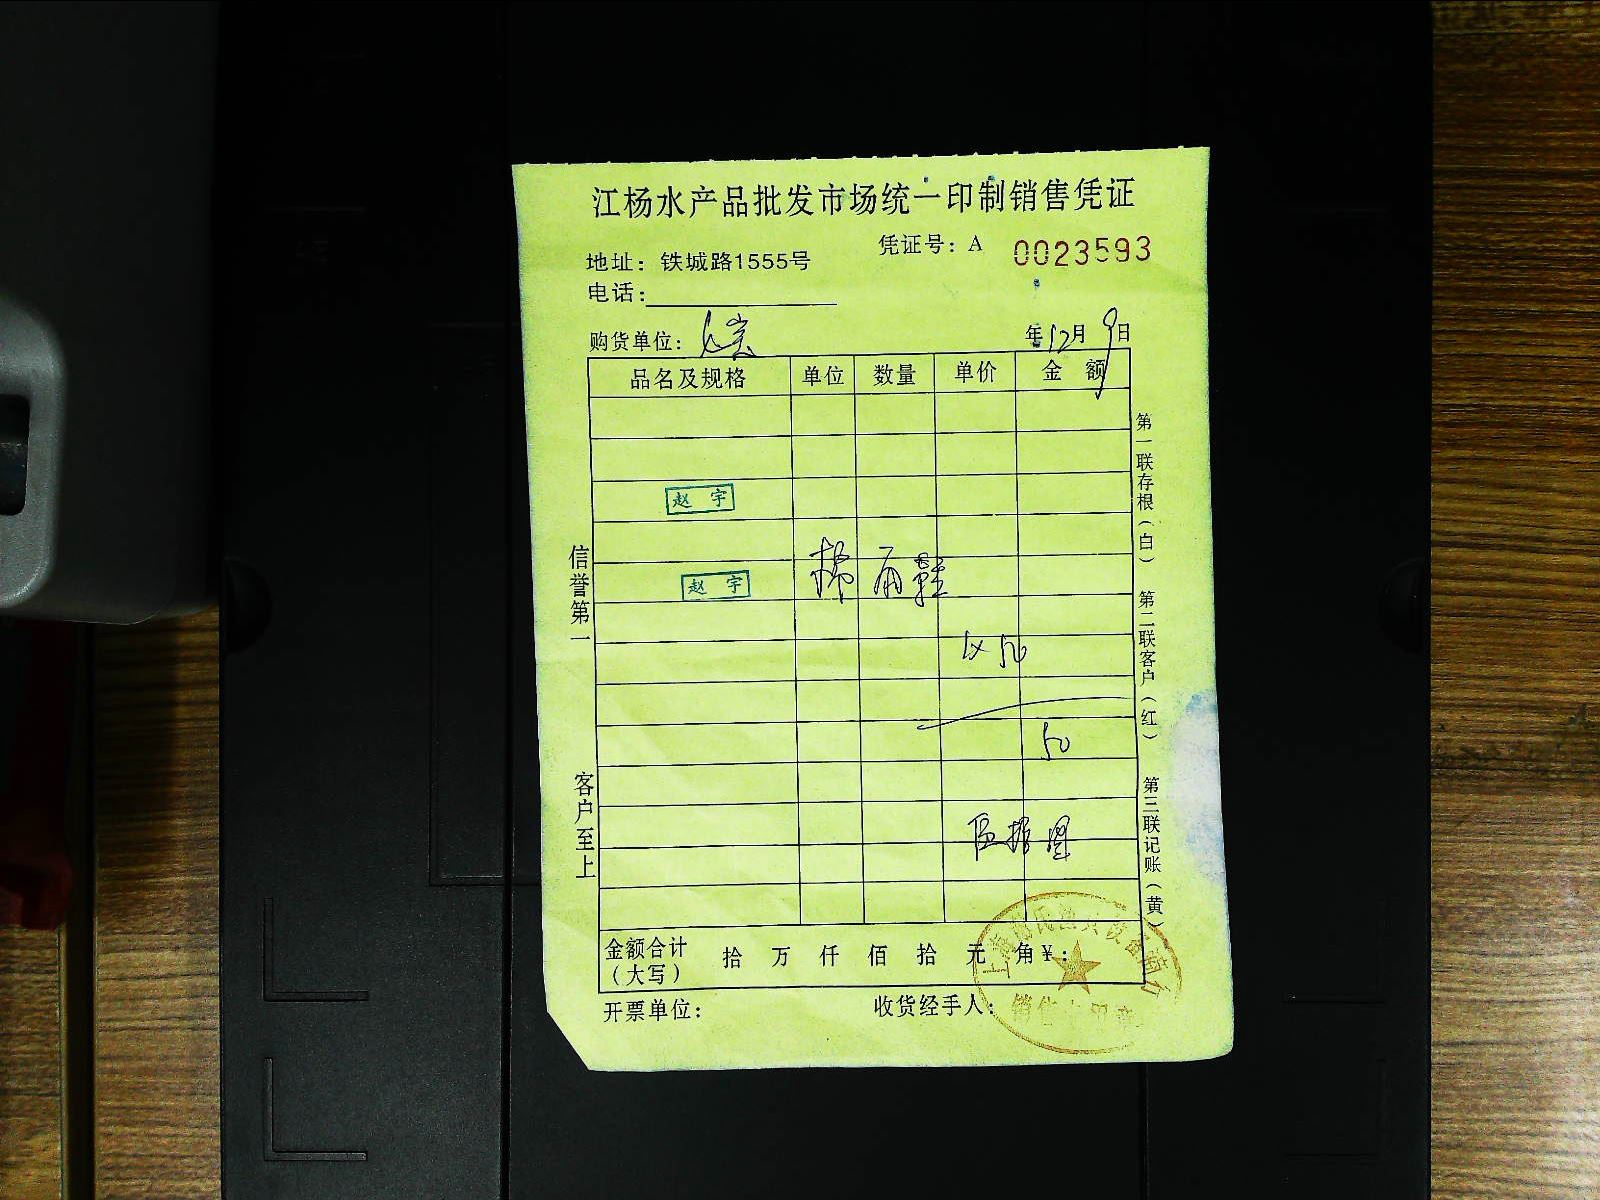 江杨水产品批发市场统一印制销售凭证
凭证号：A 0023593
地址：铁城路1555号
电话：
购货单位：
年12月9日
品名及规格 单位 数量 单价 金额
赵宇
赵宇
棉雨鞋
1×50
50
信誉第一
客户至上
第一联存根（白）
第二联客户（红）
第三联记账（黄）
金额合计（大写） 拾 万 仟 佰 拾 元 角 ¥：
开票单位： 收货经手人：